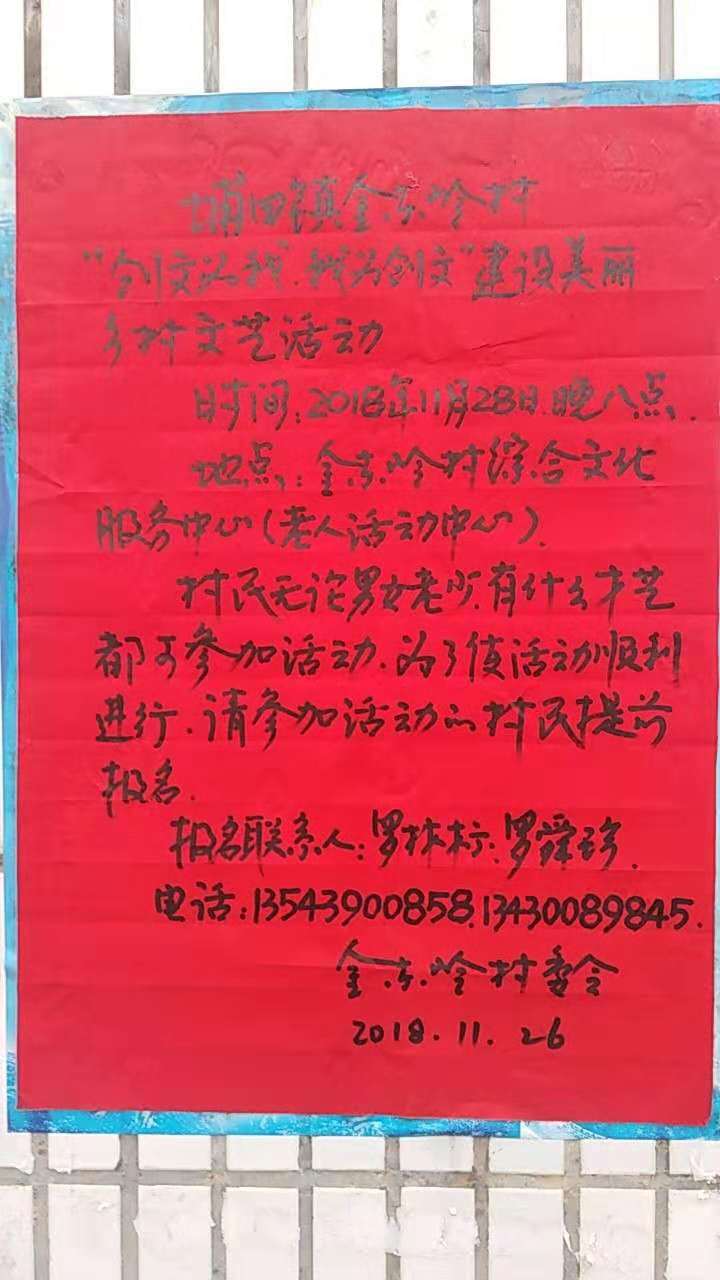 埔田镇金东岭村
“创文为我、我为创文”建设美丽
乡村文艺活动
时间:2018年11月28日晚八点.
地点:金东岭村综合文化
服务中心(老人活动中心).
村民无论男女老少.有什么才艺
都可参加活动.为了使活动顺利
进行.请参加活动的村民提前
报名.
报名联系人:罗林标、罗舜珍.
电话:13543900858.13430089845.
金东岭村委会
2018.11.26